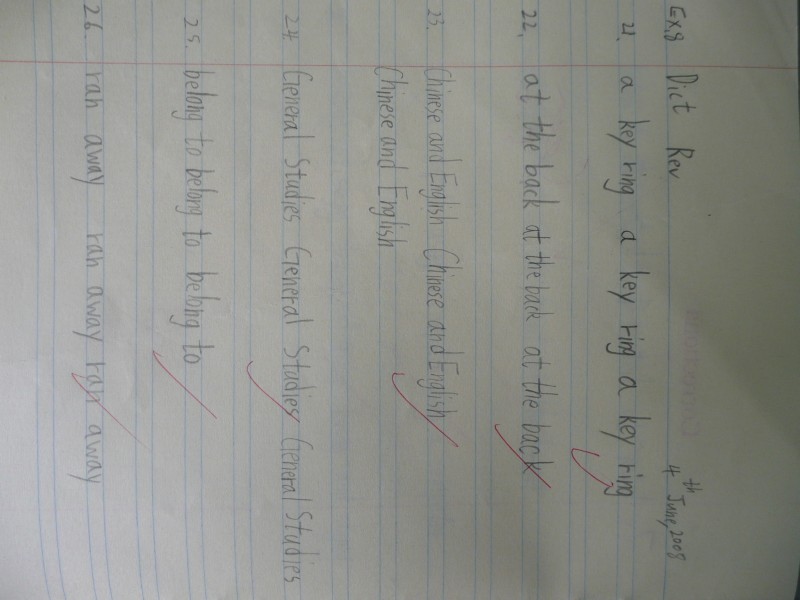 Ex.8 Dict Rev 4th June, 2008
21. a key ring a key ring a key ring
22. at the back at the back at the back
23. Chinese and English Chinese and English
Chinese and English
24. General Studies General Studies General Studies
25. belong to belong to belong to
26. ran away ran away ran away